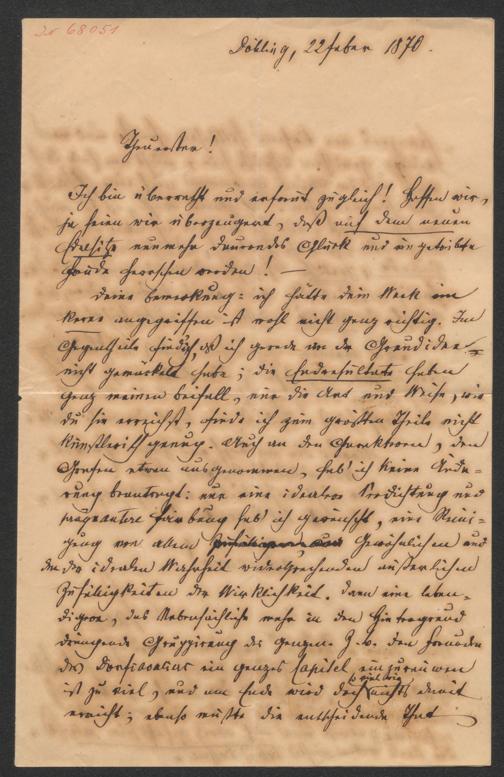 In 68051
Döbling, 22 Feber 1870.
Theuerster!
Ich bin überrascht und erfreut zugleich! Hoffen wir,
ja seien wir überzeugend, daß auf dem neuen
nunmehr dauerndes Glück und ungetrübte
Freude herrschen werden! —
Deine Bemerkung: ich hätte dein Werk im
Kerne angegriffen ist wohl nicht ganz richtig. Im
Gegentheile find' ich, daß ich gerade an der Grundidee
nicht gemäckelt habe; die Endresultate haben
ganz meinen Beifall, nur die Art und Weise, wie
du sie erreichst, finde ich zum größten Theile nicht
künstlerisch genug. Auch an den Charakteren, den
Grafen etwa ausgenommen, hab' ich keine Ände-
rung beantragt: nur eine idealere Verdichtung und
prägnantere Färbung hab' ich gewünscht, eine Reini-
gung von allem Gewöhnlichen und
den der idealen Wahrheit widersprechenden äußerlichen
Zufälligkeiten der Wirklichkeit. Dann eine leben-
digere, das Nebensächliche mehr in den Hintergrund
drängende Gruppirung des Ganzen. Z. B. den Freuden
des ein ganzes Capitel einzuräumen
ist zu viel, und am Ende wird doch nichts damit
erreicht; ebenso müßte die entscheidende That